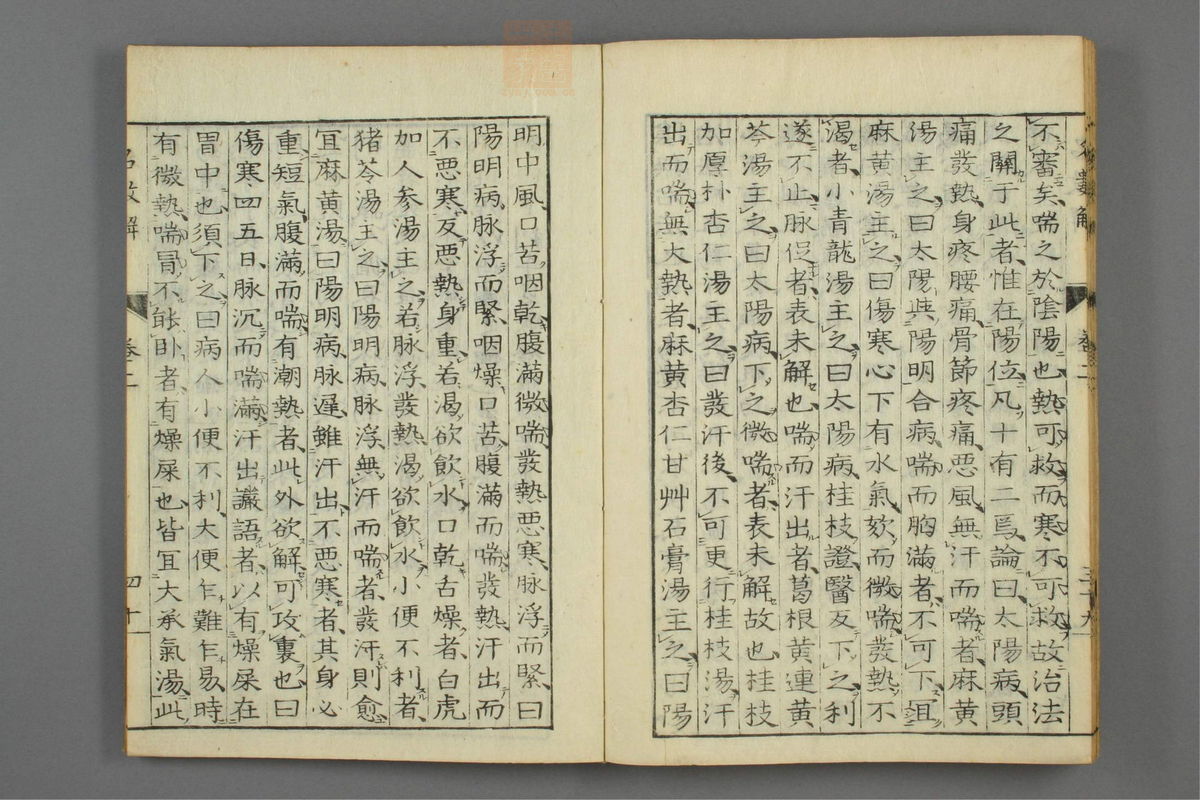 不審矣喘之於陰陽也熱可救而寒不可救故治法
之關于此者惟在陽位凡十有二焉論曰太陽病頭
痛發熱身疼腰痛骨節疼痛惡風無汗而喘者麻黄
湯主之曰太陽與陽明合病喘而胸滿者不可下宜
麻黄湯主之曰傷寒心下有水氣欬而微喘發熱不
渴者小青龍湯主之曰太陽病桂枝證醫反下之利
遂不止脉促者表未解也喘而汗出者葛根黄連黄
芩湯主之曰太陽病下之微喘者表未解故也桂枝
加厚朴杏仁湯主之曰發汗後不可更行桂枝湯汗
出而喘無大熱者麻黄杏仁甘艸石膏湯主之曰陽
卷二
明中風口苦咽乾腹滿微喘發熱惡寒脉浮而緊曰
陽明病脉浮而緊咽燥口苦腹滿而喘發熱汗出而
不惡寒反惡熱身重若渴欲飲水口乾舌燥者白虎
加人參湯主之若脉浮發熱渴欲飲水小便不利者
猪苓湯主之曰陽明病脉浮無汗而喘者發汗則愈
宜麻黄湯曰陽明病脉遲雖汗出不惡寒者其身必
重短氣腹滿而喘有潮熱者此外欲解可攻裏也曰
傷寒四五日脉沉而喘滿汗出讝語者以有燥屎在
胃中也須下之曰病人小便不利大便乍難乍易時
有微熱喘冒不能卧者有燥屎也皆宜大承氣湯此
卷二
四十